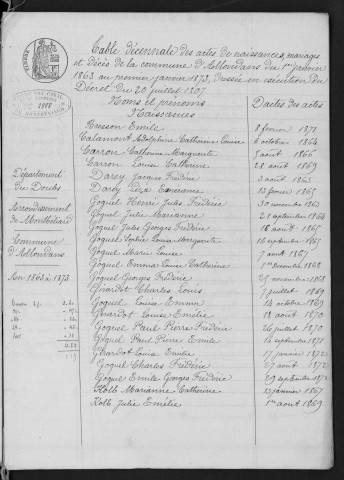 Table décennale des actes de naissances, mariages
et décès de la commune d'Allondans du 1er janvier
1863 au premier janvier 1873, dressée en exécution du
Décret du 20 juillet 1807
Noms et prénoms
Dates des actes
Naissances
Bresson Emile 8 février 1871
Calamont Adolphine Catherine Louise 6 octobre 1864
Carron Catherine Marguerite 7 août 1866
Carron Louise Catherine 28 août 1869
Darey Jacques Frédéric 3 août 1863
Darey Léa Espérance 13 février 1865
Goguel Henri Jules Frédéric 30 novembre 1863
Goguel Julie Marianne 21 septembre 1864
Goguel Jules Georges Frédéric 16 août 1865
Goguel Sophie Louise Marguerite 16 septembre 1865
Goguel Marie Louise 7 août 1867
Goguel Emma Louise Catherine 1er Décembre 1868
Goguel Georges Frédéric 27 novembre 1868
Girardot Charles Louis 7 juillet 1869
Goguel Louise Emma 14 octobre 1869
Girardot Louise Emélie 18 août 1870
Goguel Paul Pierre Frédéric 26 juillet 1870
Goguel Paul Pierre Emile 16 septembre 1871
Girardot Louise Emilie 17 janvier 1872
Goguel Charles Frédéric 27 août 1872
Goguel Emile Georges Frédéric 29 septembre 1872
Kolb Marianne Catherine 13 janvier 1867
Kolb Julie Emélie 1er août 1869
Département
du Doubs
Arrondissement
de Montbéliard
Commune
d'Allondans
An 1863 à 1873